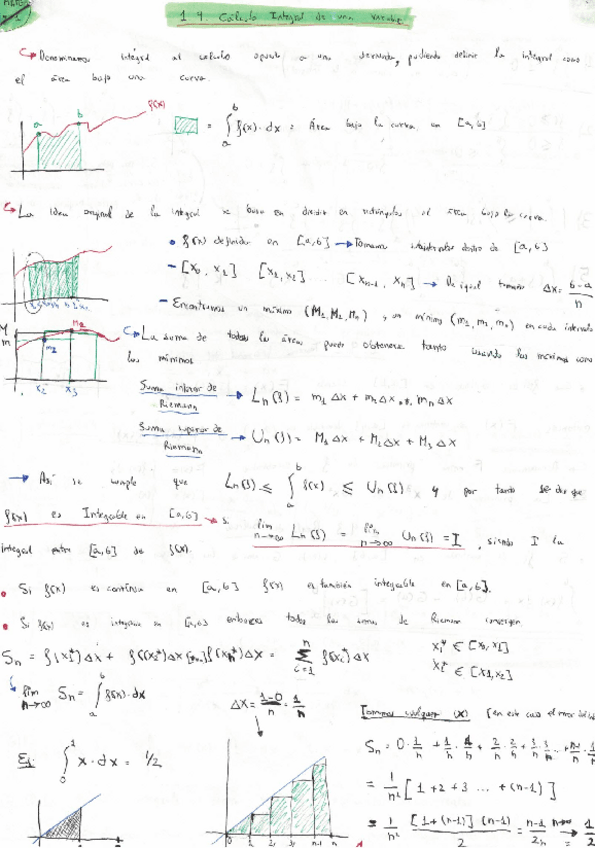 1 4. Cálculo Integral de una variable
Denominamos integral al cálculo opuesto a una derivada, pudiendo definir la integral como
el área bajo una curva.
a b f(x)
= ∫ₐᵇ f(x)·dx = Área bajo la curva en [a,b]
La idea original de la integral se basa en dividir en rectángulos el área bajo la curva.
• f(x) definida en [a,b] → Tomamos dentro de [a,b]
- [x₀, x₁] [x₁, x₂] ... [xₙ₋₁, xₙ] → De igual tamaño Δx = b-a/n
- Encontramos un máximo (M₁, M₂, Mₙ) y un mínimo (m₁, m₂, mₙ) en cada intervalo
M m m₂ M₂ x₂ x₃
La suma de todas las áreas puede obtenerse tanto usando los máximos como
los mínimos
Suma inferior de Riemann → Lₙ(f) = m₁ Δx + m₂ Δx ... mₙ Δx
Suma superior de Riemann → Uₙ(f) = M₁ Δx + M₂ Δx + M₃ Δx
→ Así se cumple que Lₙ(f) ≤ ∫ₐᵇ f(x) ≤ Uₙ(f) y por tanto se dice que
f(x) es Integrable en [a,b] → si lim n→∞ Lₙ(f) = lim n→∞ Uₙ(f) = I, siendo I la
integral entre [a,b] de f(x).
• Si f(x) es continua en [a,b] f(x) es también integrable en [a,b].
• Si f(x) es integrable en [a,b] entonces todas las sumas de Riemann convergen.
Sₙ = f(x₁*)Δx + f(x₂*)Δx ... f(xₙ*)Δx = Σ i=1 n f(xᵢ*)Δx
x₁* ∈ [x₀,x₁]
x₂* ∈ [x₁,x₂]
lim n→∞ Sₙ = ∫ₐᵇ f(x)·dx
Δx = 1-0/n = 1/n
Tomamos cualquier (x) (en este caso el
Ej. ∫₀¹ x·dx = 1/2
Sₙ = 0·1/n + 1/n·1/n + 2/n·2/n + 3/n·3/n ... + n-1/n·1/n
= 1/n² [1+2+3 ... + (n-1)]
= 1/n² [1+(n-1)](n-1)/2 = n-1/2n n→∞ → 1/2